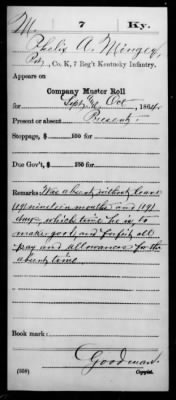 M 7 Ky.
Phelix A. Mingey
Pvt., Co. K, 7 Reg't Kentucky Infantry.
Appears on
Company Muster Roll
for Sept & Oct, 1864.
Present or absent Present
Stoppage, $ 100 for
Due Gov't, $ 100 for
Remarks: Was absent without leave
(19) nineteen months and (19)
days which time he is to
make good and forfeit all
pay and allowances for the
absent time
Book mark:
Goodman
(358) Copyist.